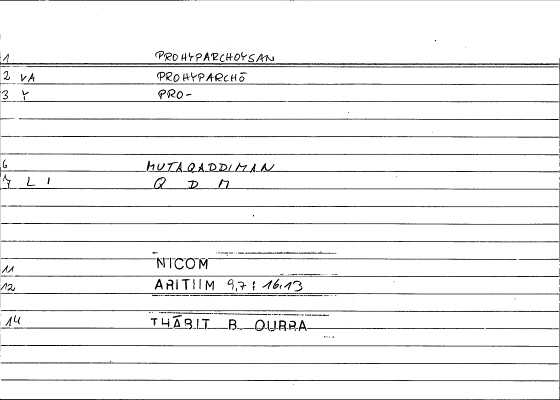 1 PROHYPARCHOYSAN
2 VA PROHYPARCHŌ
3 Y PRO-
6 MUTAQADDIMAN
7 L I Q D M
11 NICOM
12 ARITIIM 9,7 : 16,13
14 THĀBIT B. QURRA